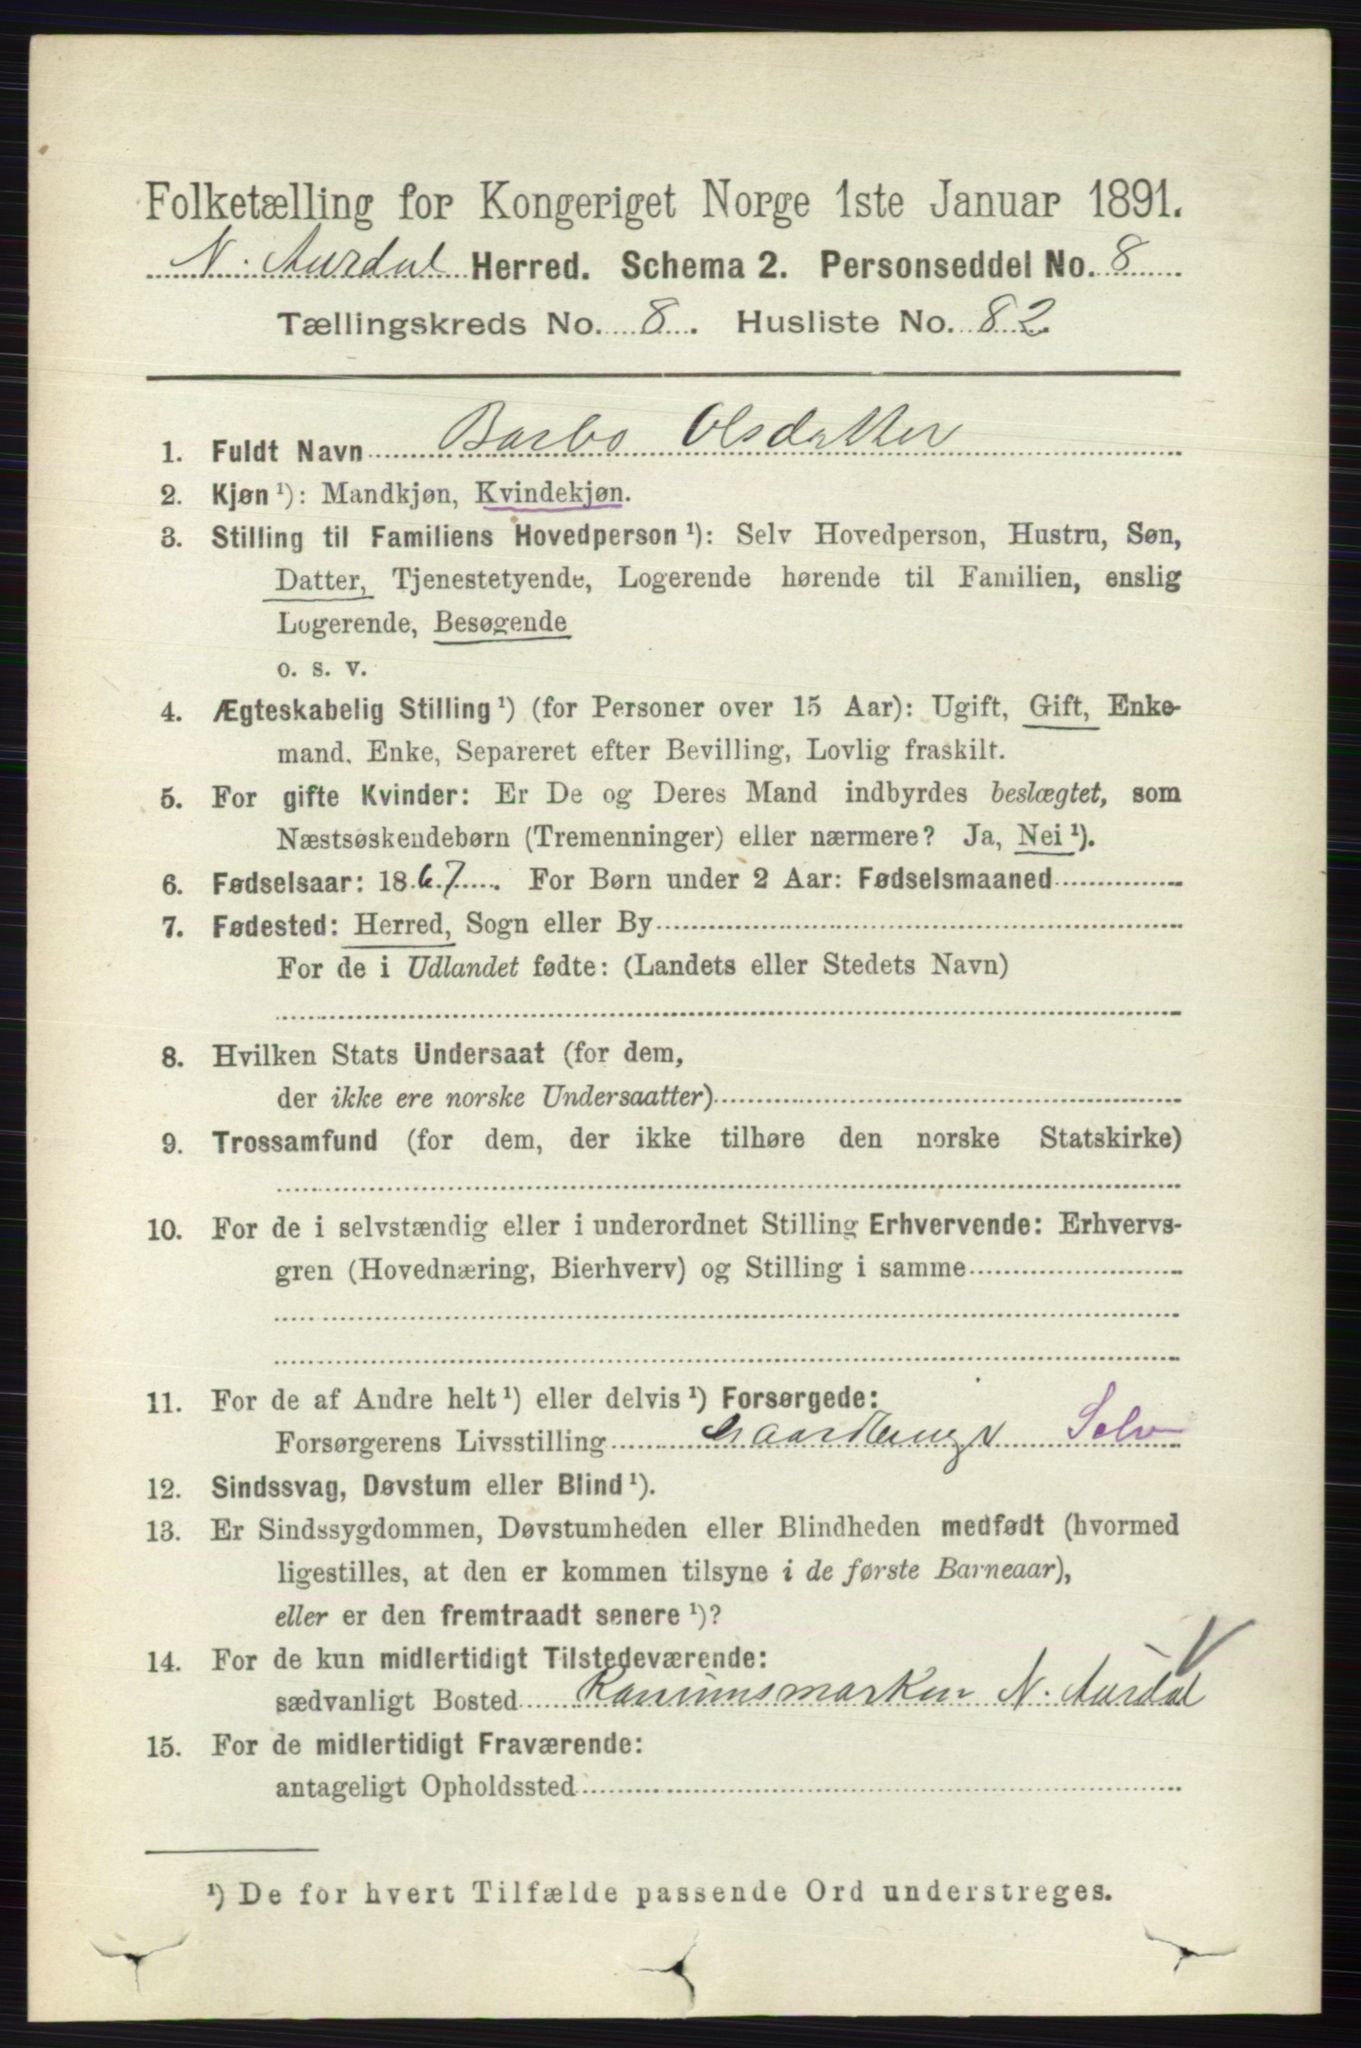 Folketælling for Kongeriget Norge 1ste Januar 1891.
N. Aurdal Herred. Schema 2. Personseddel No. 8
Tællingskreds No. 8. Husliste No. 82
1. Fuldt Navn Barbo Olsdatter
2. Kjøn ¹): Mandkjøn, Kvindekjøn.
3. Stilling til Familiens Hovedperson ¹): Selv Hovedperson, Hustru, Søn,
Datter, Tjenestetyende, Logerende hørende til Familien, enslig
Logerende, Besøgende
o. s. v.
4. Ægteskabelig Stilling ¹) (for Personer over 15 Aar): Ugift, Gift, Enke-
mand, Enke, Separeret efter Bevilling, Lovlig fraskilt.
5. For gifte Kvinder: Er De og Deres Mand indbyrdes beslægtet, som
Næstsøskendebørn (Tremenninger) eller nærmere? Ja, Nei ¹).
6. Fødselsaar: 1867. For Børn under 2 Aar: Fødselsmaaned
7. Fødested: Herred, Sogn eller By
For de i Udlandet fødte: (Landets eller Stedets Navn)
8. Hvilken Stats Undersaat (for dem,
der ikke ere norske Undersaatter)
9. Trossamfund (for dem, der ikke tilhøre den norske Statskirke)
10. For de i selvstændig eller i underordnet Stilling Erhvervende: Erhvervs-
gren (Hovednæring, Bierhverv) og Stilling i samme
11. For de af Andre helt ¹) eller delvis ¹) Forsørgede:
Forsørgerens Livsstilling Gaardbruger Selv
12. Sindssvag, Døvstum eller Blind ¹).
13. Er Sindssygdommen, Døvstumheden eller Blindheden medfødt (hvormed
ligestilles, at den er kommen tilsyne i de første Barneaar),
eller er den fremtraadt senere ¹)?
14. For de kun midlertidigt Tilstedeværende:
sædvanligt Bosted N. Aurdal
15. For de midlertidigt Fraværende:
antageligt Opholdssted
¹) De for hvert Tilfælde passende Ord understreges.